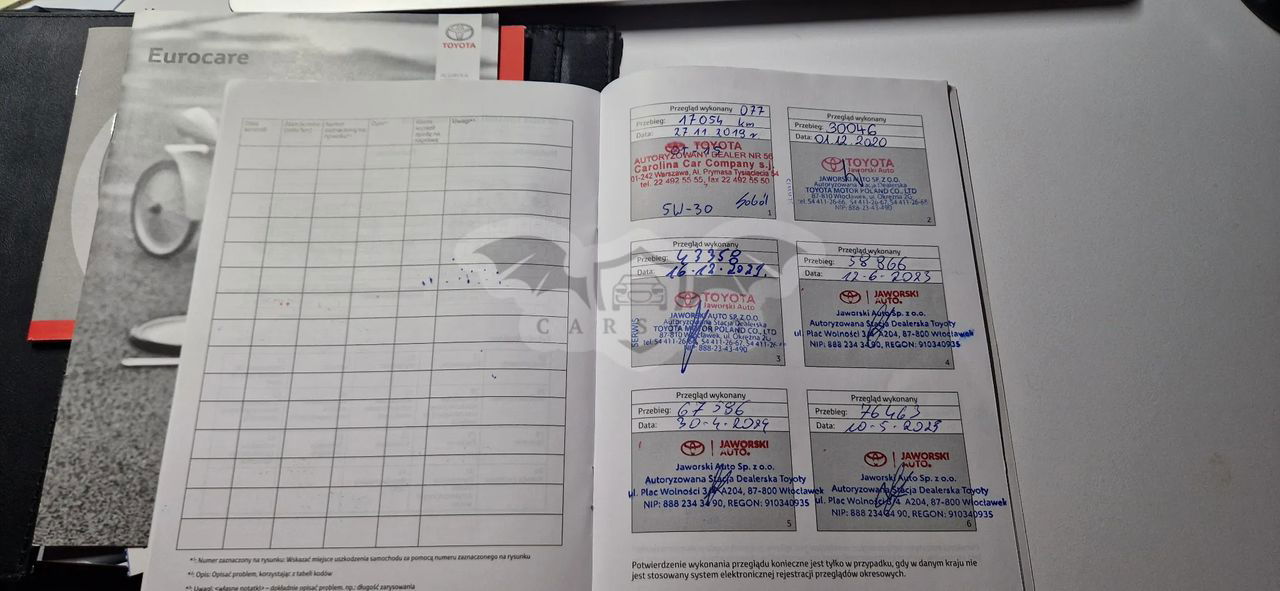 TOYOTA
Eurocare
Uwagi*³⁾
*¹⁾: Numer zaznaczony na rysunku: Wskazać miejsce uszkodzenia samochodu za pomocą numeru zaznaczonego na rysunku
*²⁾: Opis: Opisać problem, korzystając z tabeli kodów
*³⁾: Uwagi: <własne notatki> – dokładnie opisać problem, np.: długość zarysowania
Przegląd wykonany 077
Przebieg: 17054 km
Data: 27 11 2019 r
TOYOTA
AUTORYZOWANY DEALER NR 56
Carolina Car Company s.j.
01-242 Warszawa, Al. Prymasa Tysiąclecia 54
tel. 22 492 55 55, fax 22 492 55 50
5W-30 Soból
1
Przegląd wykonany
Przebieg: 30046
Data: 01.12.2020
TOYOTA
Jaworski Auto
JAWORSKI AUTO SP. Z O.O.
Autoryzowana Stacja Dealerska
TOYOTA MOTOR POLAND CO., LTD
87-810 Włocławek, ul. Okrężna 2L
tel. 54 411-26-66, 54 411-26-67, 54 411-26-68
NIP: 888-23-43-490
2
Przegląd wykonany
Przebieg: 43358
Data: 16.12.2021.
SERWIS
TOYOTA
Jaworski Auto
JAWORSKI AUTO SP. Z O.O.
Autoryzowana Stacja Dealerska
TOYOTA MOTOR POLAND CO., LTD
87-810 Włocławek, ul. Okrężna 2L
tel. 54 411-26-66, 54 411-26-67, 54 411-26-
NIP: 888-23-43-490
3
Przegląd wykonany
Przebieg: 58866
Data: 12-6-2023
JAWORSKI
AUTO.
Jaworski Auto Sp. z o.o.
Autoryzowana Stacja Dealerska Toyoty
ul. Plac Wolności 3/4 A204, 87-800 Włocławek
NIP: 888 234 34 90, REGON: 910340935
4
CARS
Przegląd wykonany
Przebieg: 67586
Data: 30-4-2024
JAWORSKI
AUTO.
Jaworski Auto Sp. z o.o.
Autoryzowana Stacja Dealerska Toyoty
ul. Plac Wolności 3/4 A204, 87-800 Włocławek
NIP: 888 234 34 90, REGON: 910340935
5
Przegląd wykonany
Przebieg: 76463
Data: 10-5-2025
JAWORSKI
AUTO.
Jaworski Auto Sp. z o.o.
Autoryzowana Stacja Dealerska Toyoty
ul. Plac Wolności 3/4 A204, 87-800 Włocławek
NIP: 888 234 34 90, REGON: 910340935
6
Potwierdzenie wykonania przeglądu konieczne jest tylko w przypadku, gdy w danym kraju nie
jest stosowany system elektronicznej rejestracji przeglądów okresowych.